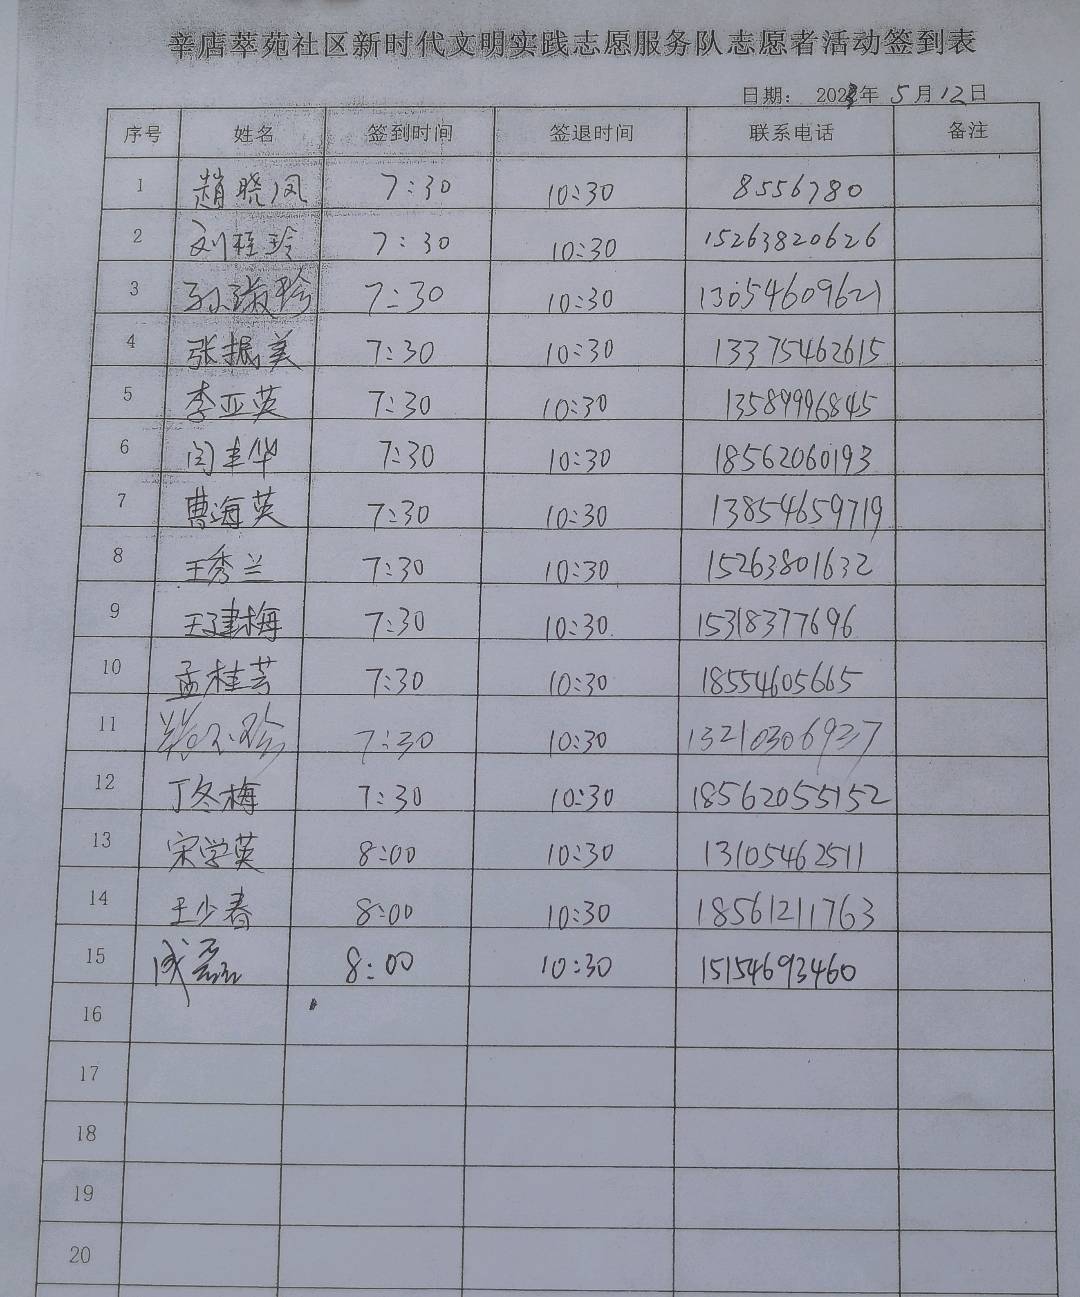 辛店萃苑社区新时代文明实践志愿服务队志愿者活动签到表
日期： 202 年 5月12日
序号 姓名 签到时间 签退时间 联系电话 备注
1 趙晓凤 7:30 10:30 8556780
2 刘桂玲 7:30 10:30 15263820626
3 孙淑珍 7:30 10:30 13054609621
4 张振美 7:30 10:30 13375462615
5 李亚英 7:30 10:30 13589996845
6 闫丰华 7:30 10:30 18562060193
7 曹海英 7:30 10:30 13854659719
8 王秀兰 7:30 10:30 15263801632
9 王建梅 7:30 10:30 15318377696
10 孟桂芸 7:30 10:30 18554605665
11 7:30 10:30 13210306937
12 丁冬梅 7:30 10:30 18562055152
13 宋学英 8:00 10:30 13105462511
14 王少春 8:00 10:30 18561211763
15 成磊 8:00 10:30 15154693460
16
17
18
19
20